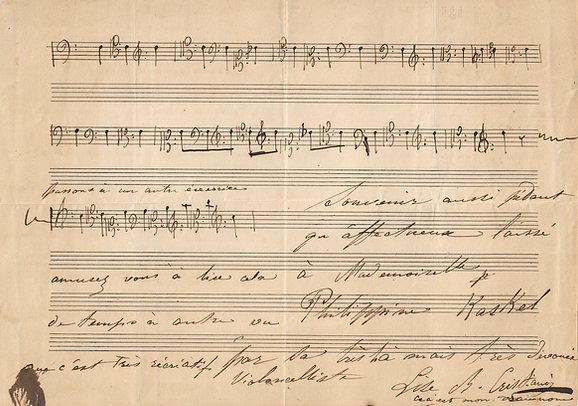 passons à un autre exercice
Souvenir aussi pédant
qu'affectueux laissé
amusez vous à lire cela
à Mademoiselle
de temps à autre
Philippine Kaskel
que c'est très récréatif
par sa très mais très dévouée
Violoncelliste
Lise B. Cristiani
ceci est mon